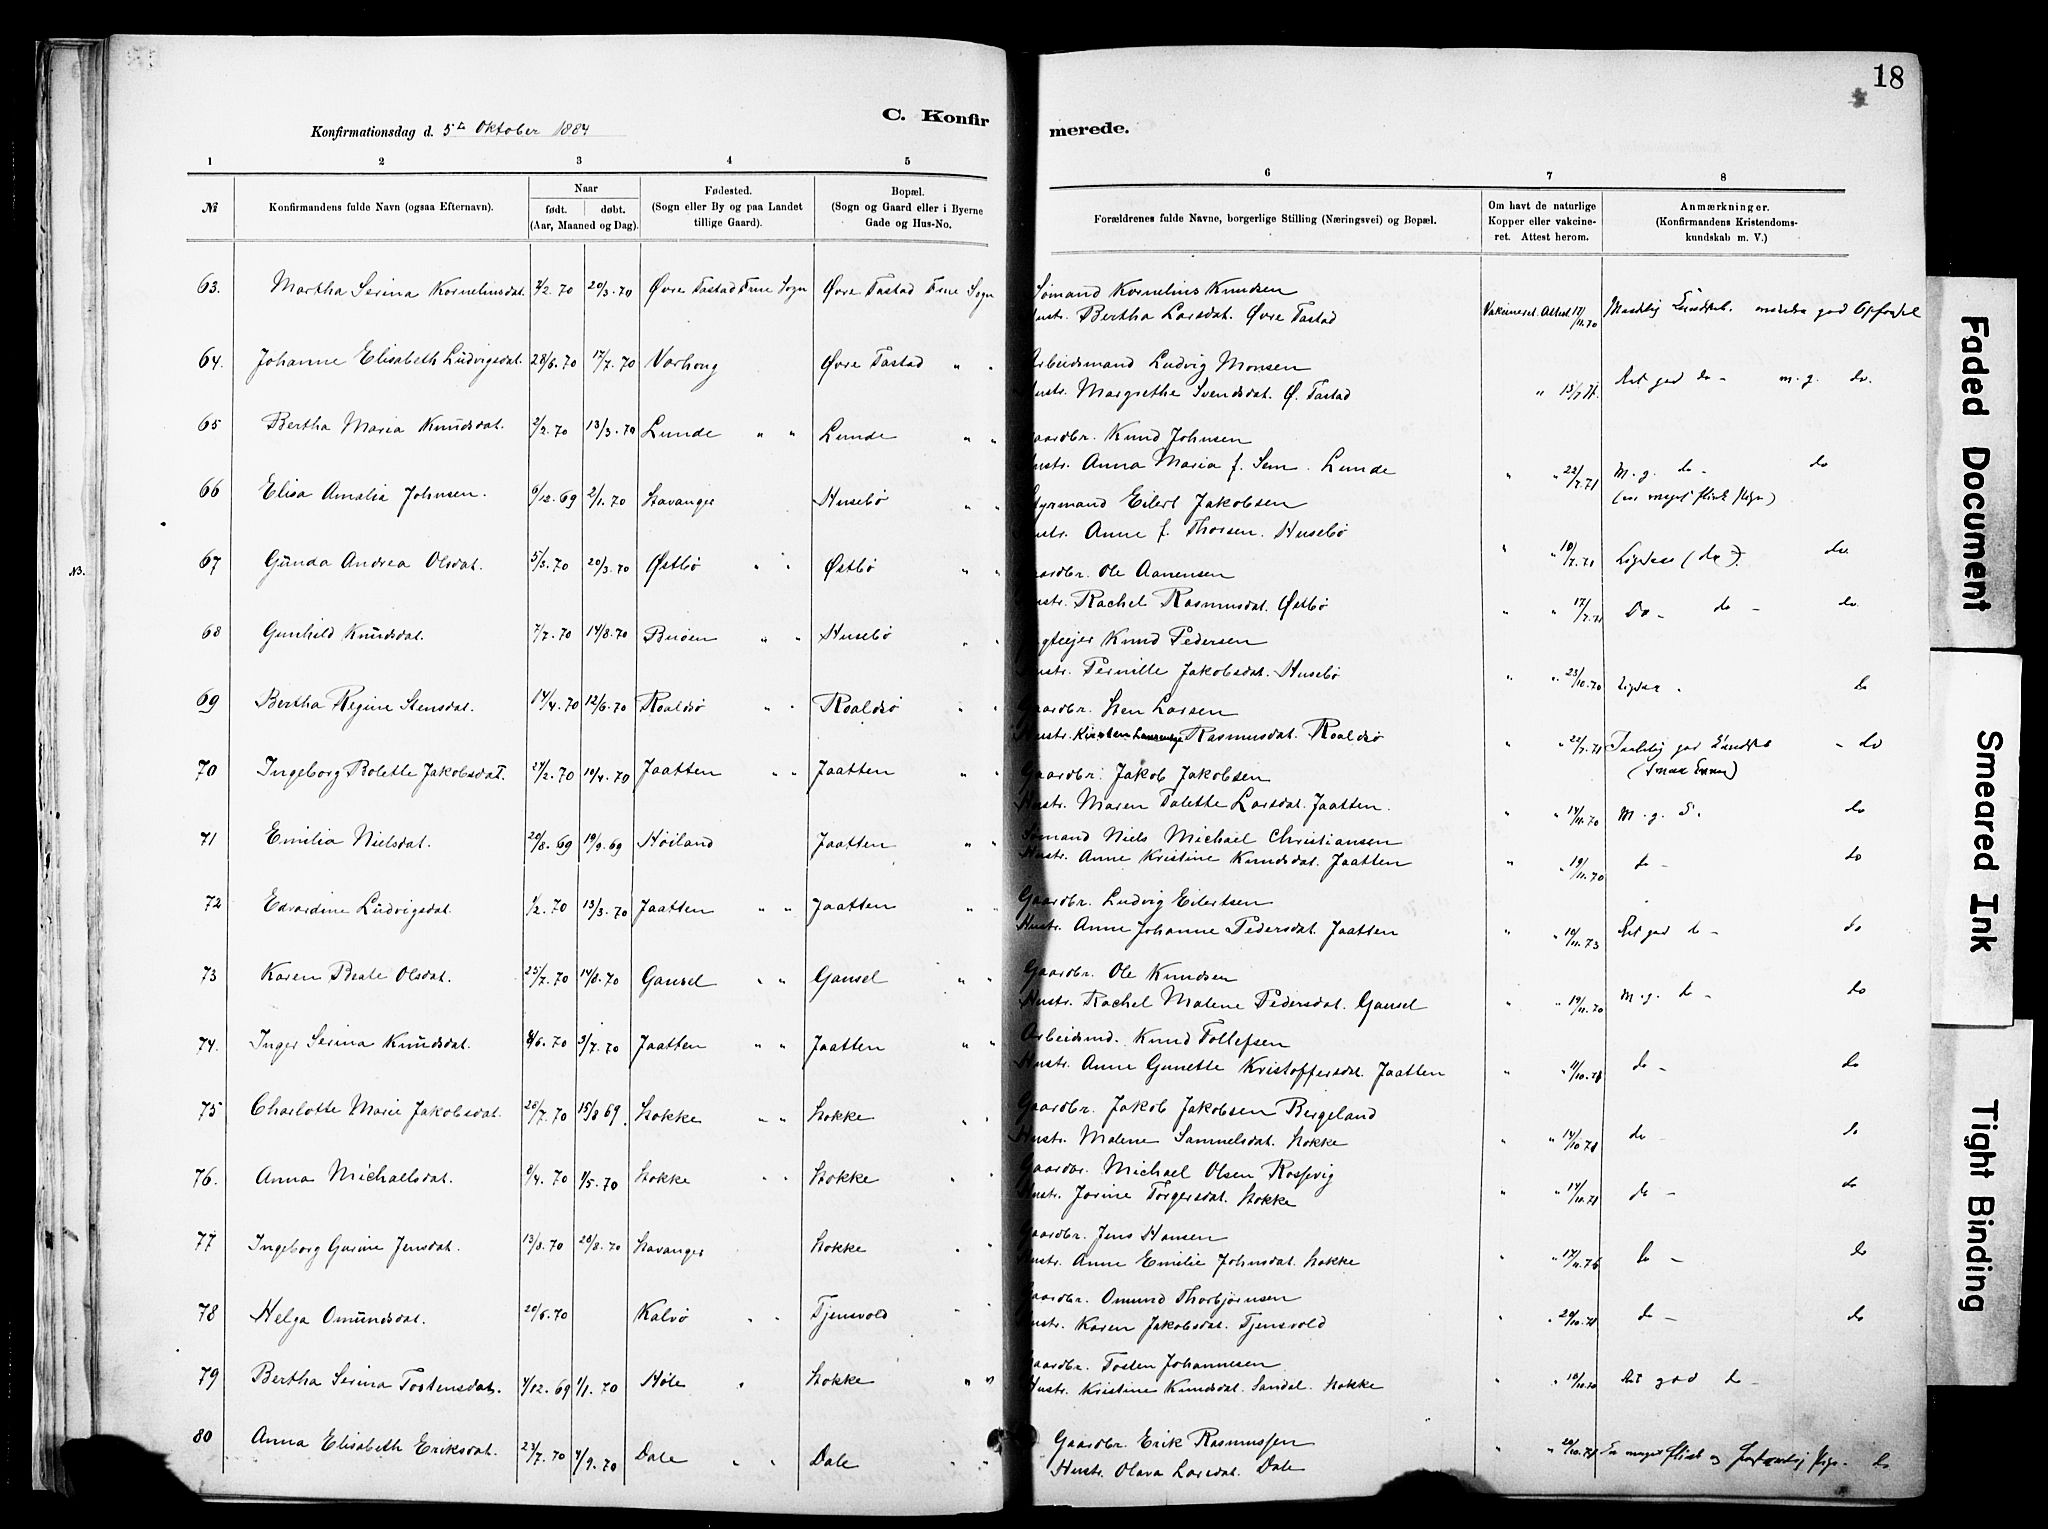 18
Konfirmationsdag d. 5te Oktober 1884
C. Konfirmerede.
1 2 3 4 5 6 7 8
№
Konfirmandens fulde Navn (ogsaa Efternavn).
Naar
født. døbt.
(Aar, Maaned og Dag).
Fødested.
(Sogn eller By og paa Landet
tillige Gaard).
Bopæl.
(Sogn og Gaard eller i Byerne
Gade og Hus-No.
Forældrenes fulde Navne, borgerlige Stilling (Næringsvei) og Bopæl.
Om havt de naturlige
Kopper eller vakcine-
ret. Attest herom.
Anmærkninger.
(Konfirmandens Kristendoms-
kundskab m. V.)
63. Martha Serina Kornelinsdat. 20/3. 70 Øvre Tastad Frue Sogn Øvre Tastad Frue Sogn Sømand Kornelius Knudsen
Hustr. Bertha Larsdat. Øvre Tastad Vakcineret. Attest 17/11.70
64. Johanne Elisabeth Ludvigsdat. 28/6. 70 17/7. 70 Varhoug Øvre Tastad " " Arbeidsmand Ludvig Monsen
Hustr. Margrethe Svendsdat. Ø. Tastad " Ret god do - m. g. do.
65 Bertha Maria Knudsdat. 2/2. 70 13/3. 70 Lunde " " Lunde " " Gaardbr. Knud Johnsen
Hustr. Anna Maria f. Sem. Lunde " " 22/7.71 M. g. do - do
66 Elisa Amalia Johnsen. 6/12. 69 2/1. 70 Stavanger Husebø " " Styrmand Eilert Jakobsen
Hustr. Anne f. Thorsen. Husebø
67 Gunda Andrea Olsdat. 5/3. 70 20/3. 70 Østbø " " Østbø " " Gaardbr. Ole Aanensen
Hustr. Rachel Rasmusdat. Østbø " " 17/7.71 Do - do - do.
68 Gunhild Knudsdat. 7/7. 70 14/8. 70 Buøen " " Husebø " " Knud Pedersen
Hustr. Pernille Jakobsdat. Husebø " " 23/10.70
69 Bertha Regine Stensdat. 14/4. 70 12/6. 70 Roaldsø " " Roaldsø " " Gaardbr. Sten Larsen
Hustr. Kirsten Rasmusdat. Roaldsø " " 22/7.71
70 Ingeborg Bolette Jakobsdat. 27/2. 70 19/4. 70 Jaatten " " Jaatten " " Gaardbr. Jakob Jakobsen
Hustr. Maren Talette Larsdat. Jaatten. " " 14/11.70 M. g. do
71 Emilia Nielsdat. 20/8. 69 19/9. 69 Høiland Jaatten " " Sømand Niels Michael Christiansen
Hustr. Anne Kristine Knudsdat. Jaatten " " 19/11.70 do - do
72 Edvardine Ludvigsdat. 1/2. 70 13/3. 70 Jaatten " " Jaatten " " Gaardbr. Ludvig Eilertsen
Hustr. Anne Johanne Pedersdat. Jaatten " " 10/11.73 Ret god do - do
73 Karen Beate Olsdat. 23/7. 70 14/8. 70 Gausel " " Gausel " " Gaardbr. Ole Knudsen
Hustr. Rachel Malene Pedersdat. Gausel " " 19/11.70 M. g. do - do
74. Inger Serina Knudsdat. 8/6. 70 3/7. 70 Jaatten " " Jaatten " " Arbeidsmd. Knud Tollefsen
Hustr. Anne Gunette Kristoffersdat. Jaatten " " 11/10.71 do - do
75 Charlotte Marie Jakobsdat. 20/7. 70 15/8 69. Stokke " " Stokke " Gaardbr. Jakob Jakobsen Bergeland
Hustr. Malene Samuelsdat. Stokke " " 14/10.71 do - do
76. Anna Michaelsdat. 8/4. 70 1/5. 70 Stokke " " Stokke " " Gaardbr. Michael Olsen Rossevig
Hustr. Jorine Torgersdat. Stokke " " 14/10.71 do - do
77 Ingeborg Gurine Jensdat. 13/8. 70 20/8. 70 Stavanger Stokke " " Gaardbr. Jens Hansen
Hustr. Anne Emilie Johnsdat. Stokke " " do - do
78 Helga Omundsdat. 20/6. 70 Kalvø " " Tjensvold " " Gaardbr. Omund Thorbjørnsen
Hustr. Karen Jakobsdat. Tjensvold " " 20/10.71 do - do
79 Bertha Serina Tostensdat. 4/12. 69 1/1. 70 Høle " Stokke " " Gaardbr. Tosten Johannesen
Hustr. Kristine Knudsdat. Sandal. Stokke " " 10/10.70 Ret god do -
80 Anna Elisabeth Eriksdat. 23/7. 70 4/9. 70 Dale " " Dale " " Gaardbr. Erik Rasmussen
Hustr. Olava Larsdat. Dale " " 20/10.71 do
Faded Document
Smeared Ink
Tight Binding